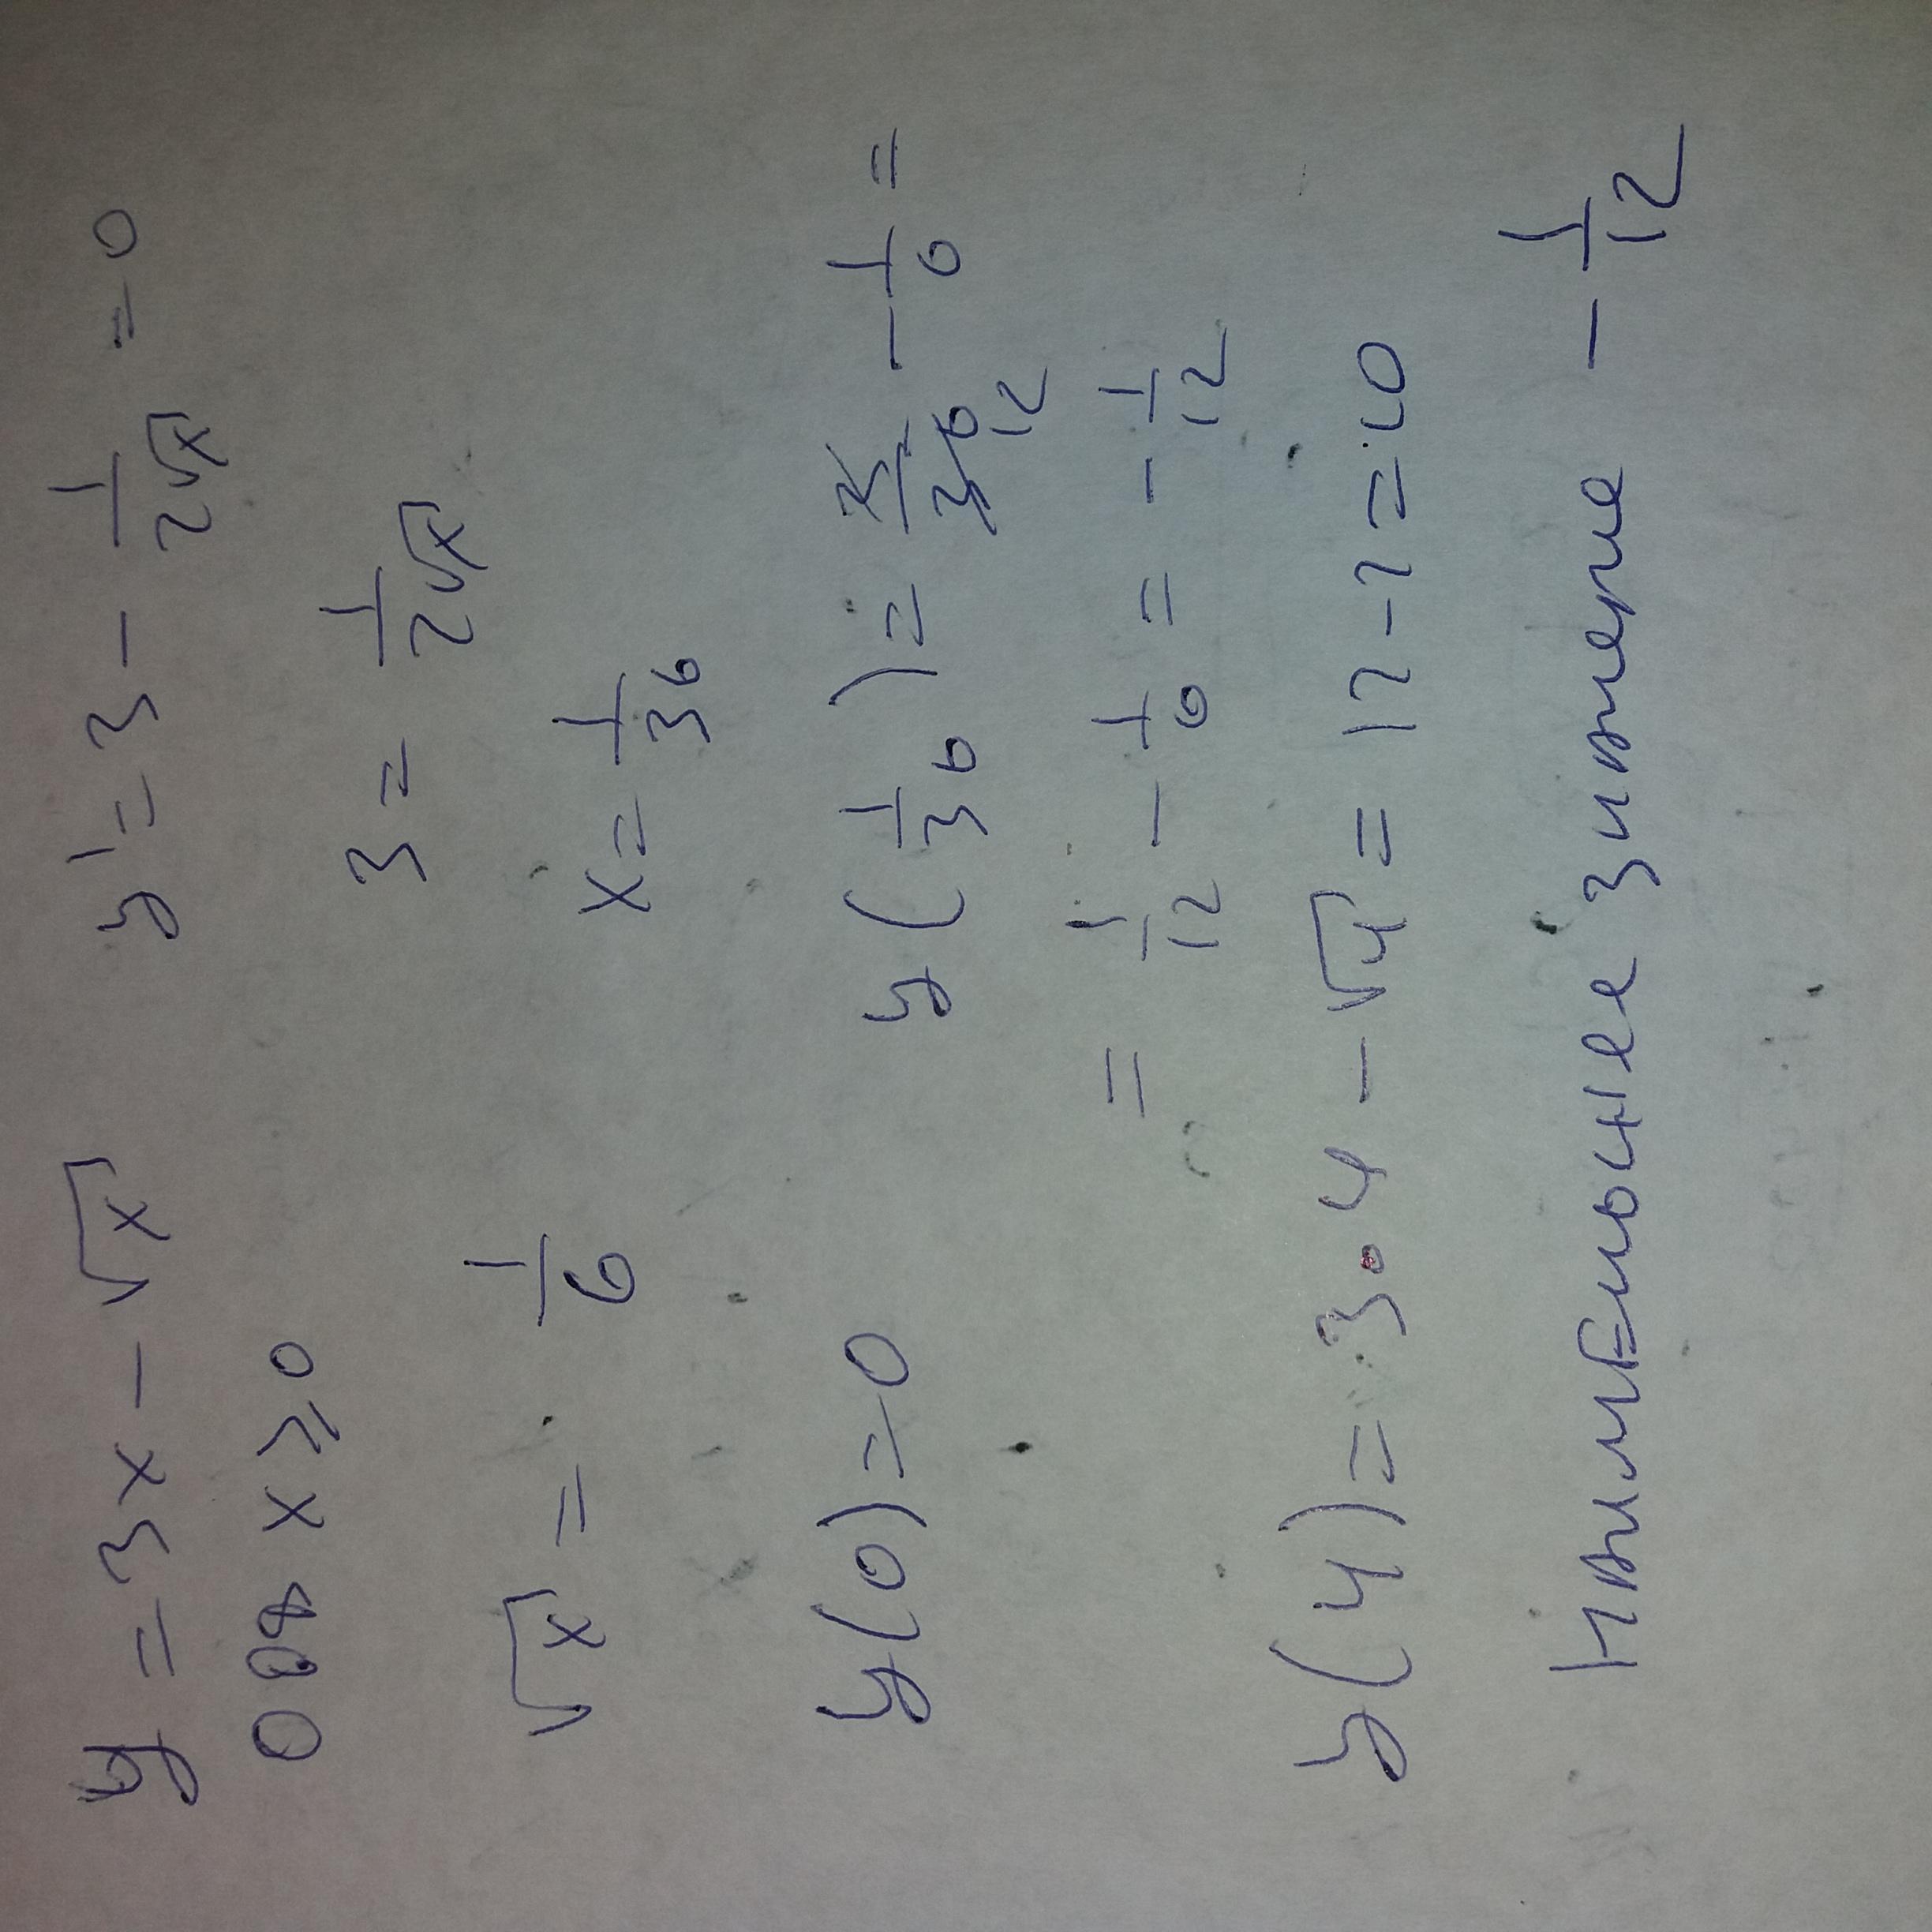 y = 3x - √x   y' = 3 - 1/(2√x) = 0
ООФ x ≥ 0   3 = 1/(2√x)
√x = 1/6   x = 1/36
y(0) = 0   y(1/36) = 3/36 12 - 1/6 =
= 1/12 - 1/6 = - 1/12
y(4) = 3·4 - √4 = 12 - 2 = 10
Наименьшее значение - 1/12